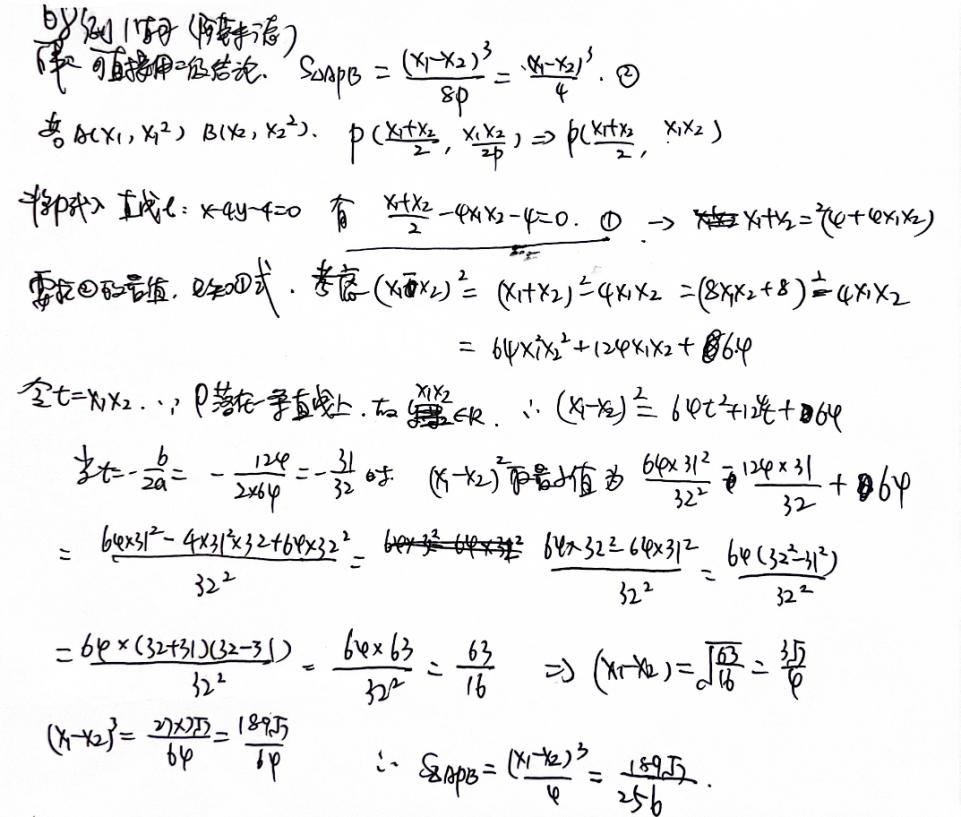 可直接用二级结论. S△APB = (x₁-x₂)³/8p = (x₁-x₂)³/4 . ②
若 A(x₁, x₁²) B(x₂, x₂²). P(x₁+x₂/2, x₁x₂/2p) ⇒ P(x₁+x₂/2, x₁x₂)
将P代入 直线l: x-4y-4=0 有 x₁+x₂/2 - 4x₁x₂ - 4=0. ① → x₁+x₂=2(4+4x₁x₂)
要求②的最值, 已知①式. 考虑 (x₁-x₂)² = (x₁+x₂)² - 4x₁x₂ = (8x₁x₂+8)² - 4x₁x₂
= 64x₁²x₂² + 124x₁x₂ + 64
令t=x₁x₂. ∵ P落在一条直线上, 故 x₁x₂ ∈R. ∴ (x₁-x₂)² = 64t²+124t+64
当t=-b/2a = -124/2×64 = -31/32 时 (x₁-x₂)² 取最小值为 64×31²/32² - 124×31/32 + 64
= 64×31² - 4×31²×32 + 64×32²/32² = 64×32² - 64×31²/32² = 64(32²-31²)/32²
= 64×(32+31)(32-31)/32² = 64×63/32² = 63/16 ⇒ (x₁-x₂) = √63/16 = 3√7/4
(x₁-x₂)³ = 27×7√7/64 = 189√7/64 ∴ S△APB = (x₁-x₂)³/4 = 189√7/256 .